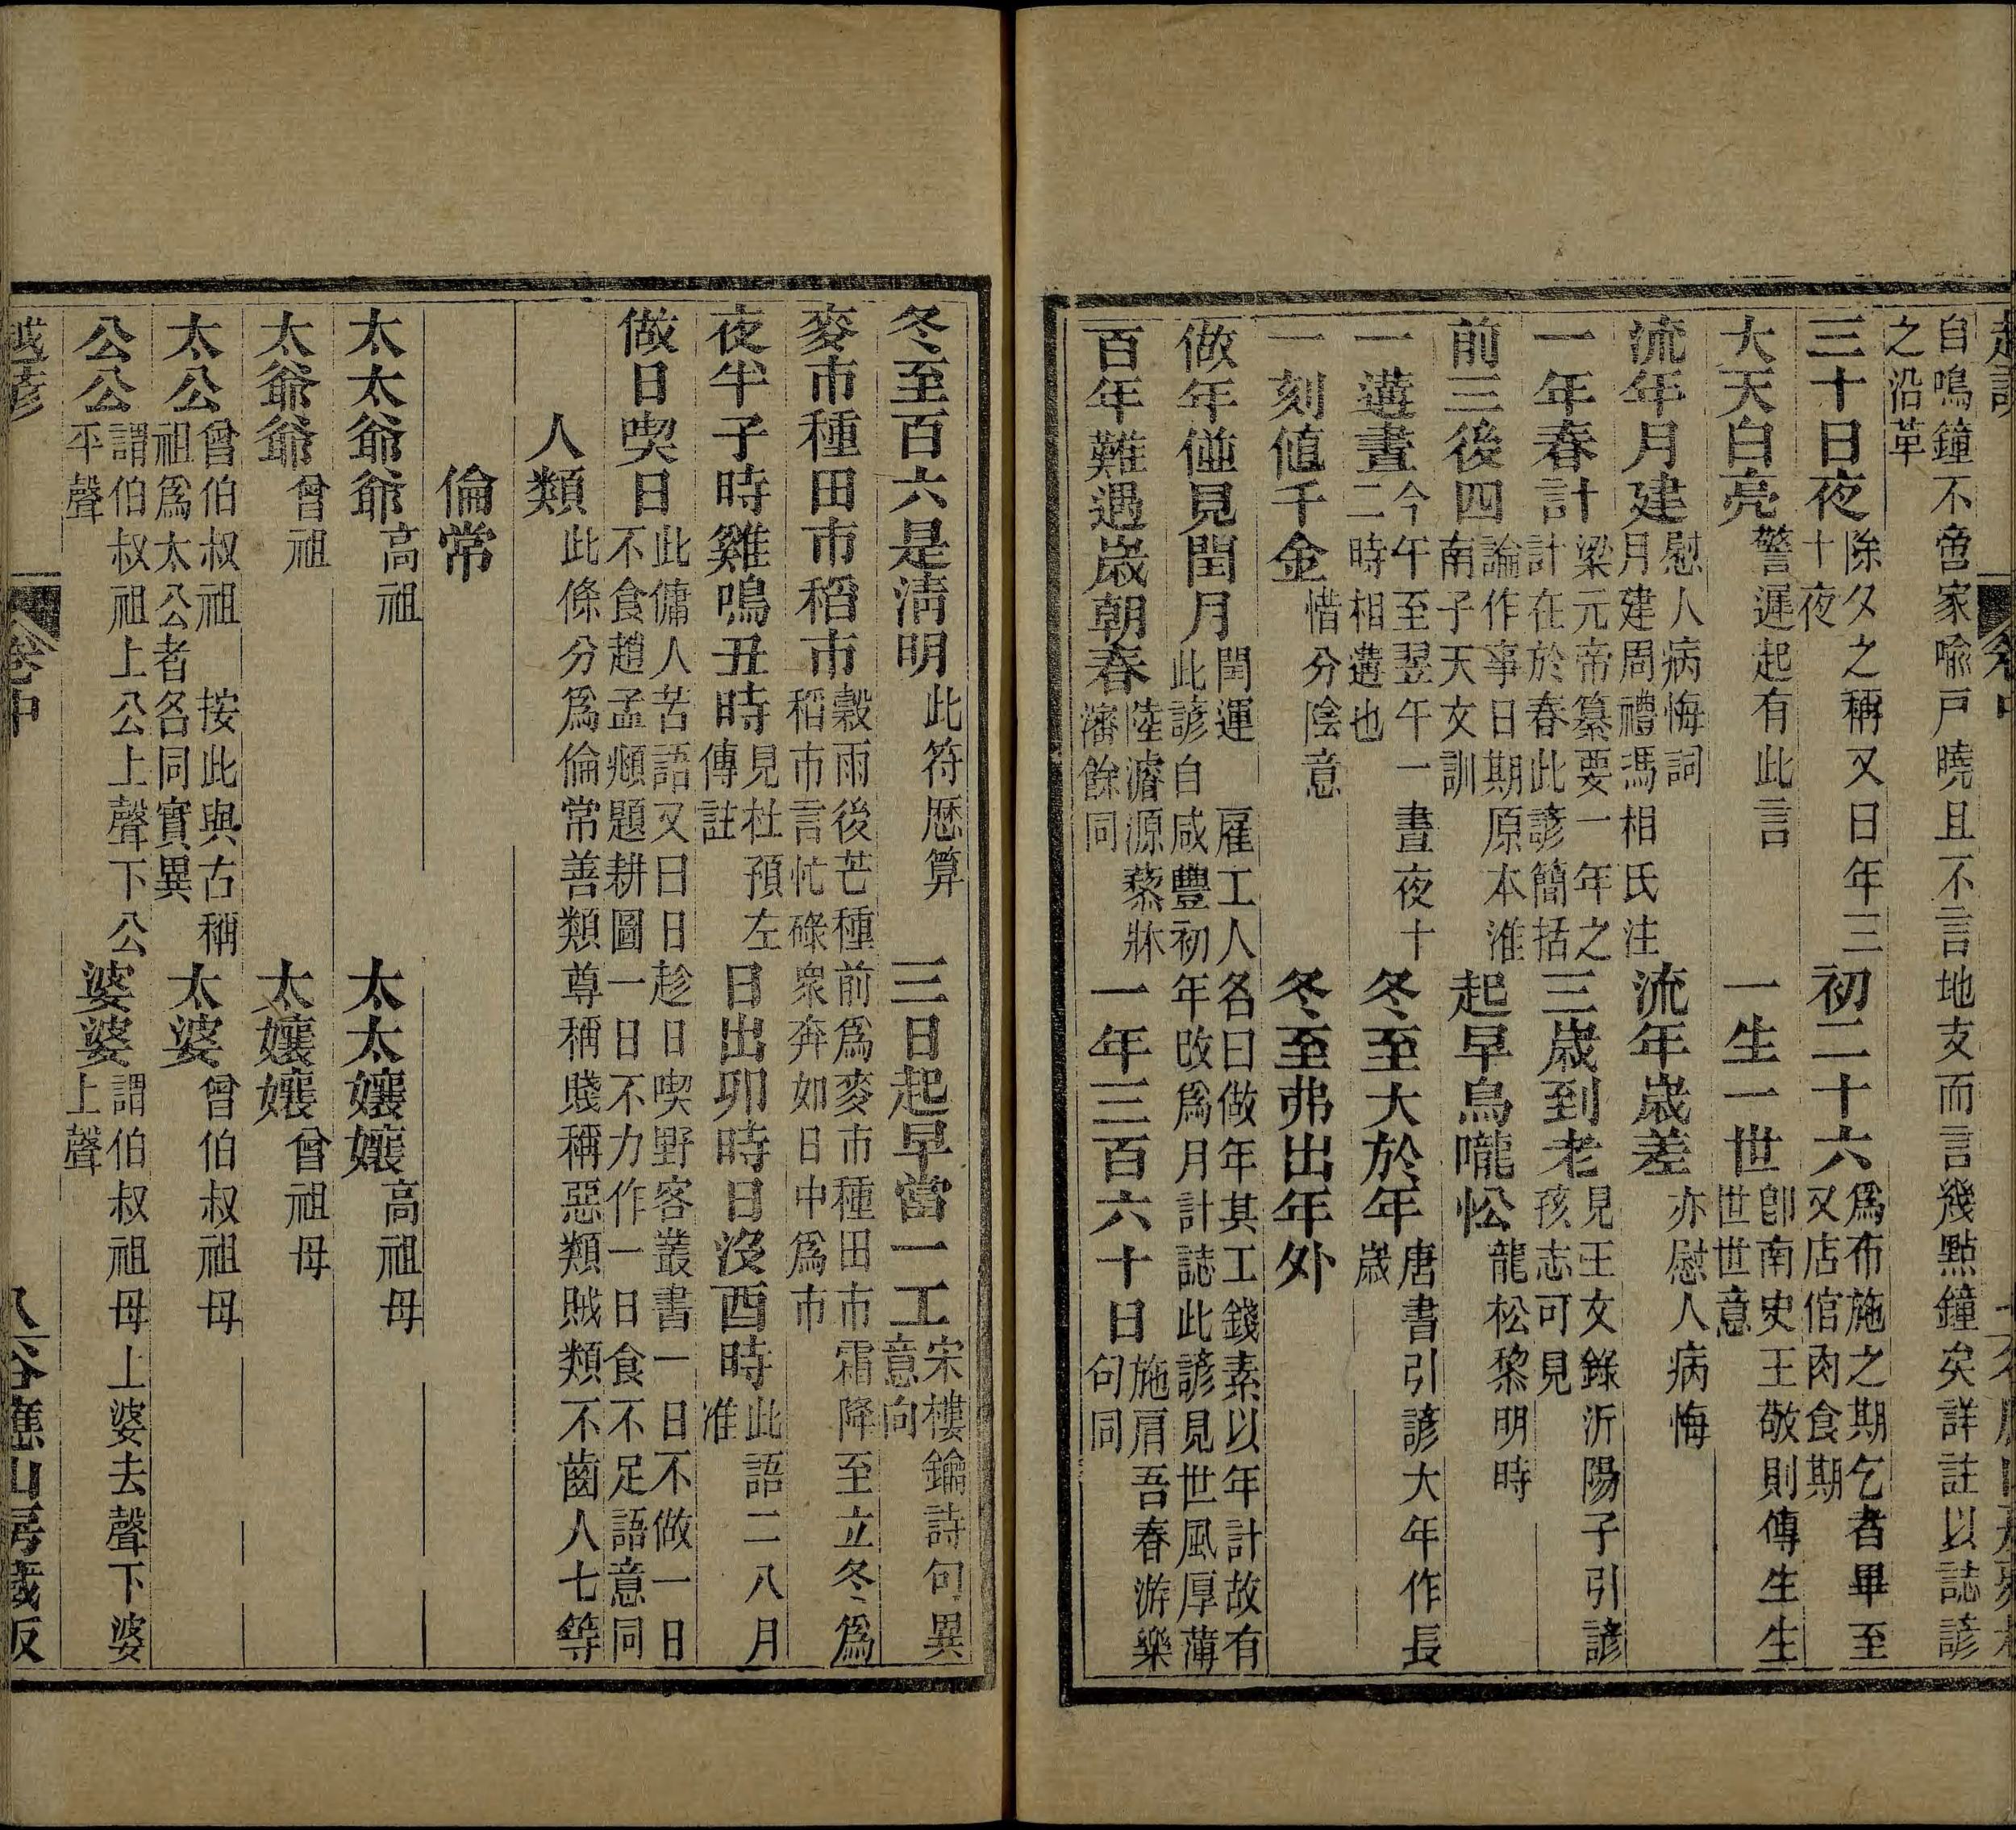 自鳴鐘不啻家喻戶曉且不言地支而言幾點鐘矣詳註以誌諺
之沿革
三十日夜 除夕之稱又日年三十夜 初二十六 爲布施之期乞者畢至又店倌肉食期
大天白亮 警遲起有此言 一生一世 卽南史王敬則傳生生世世意
流年月建 慰人病悔詞月建周禮馮相氏注 流年歲差 亦慰人病悔
一年春計 梁元帝纂要一年之計在於春此諺簡括 三歲到老 見王文錄沂陽子引諺孩志可見
前三後四 論作事日期原本淮南子天文訓 起早鳥嚨忪 龍松黎明時
一遘晝 今午至翌午一晝夜十二時相遘也 冬至大於年 唐書引諺大年作長歲
一刻値千金 惜分陰意 冬至弗出年外
做年傩見閏月 閏運 雇工人各曰做年其工錢素以年計故有此諺自咸豐初年改爲月計誌此諺見世風厚薄
百年難遇歲朝春 陸濬源蓺牀瀋餘同 一年三百六十日 施肩吾春游樂句同
冬至百六是淸明 此符厯算 三日起早當一工 宋樓鑰詩句異意向
麥市種田市稻市 穀雨後芒種前爲麥市種田市霜降至立冬爲稻市言忙碌衆奔如日中爲市
夜半子時雞鳴丑時 見杜預左傳註 日出卯時日沒酉時 此語二八月准
做日喫日 此傭人苦語又曰日趁日喫野客叢書一日不做一日不食趙孟頫題耕圖一日不力作一日食不足語意同
人類 此條分爲倫常善類尊稱賤稱惡類賊類不齒人七等
倫常
太太爺爺 高祖 太太孃孃 高祖母
太爺爺 曾祖 太孃孃 曾祖母
太公 曾伯叔祖 按此與古稱曾祖爲太公者各同實異 太婆 曾伯叔祖母
公公 謂伯叔祖上公上聲下公平聲 婆婆 謂伯叔祖母上婆去聲下婆上聲
越諺 卷中 谷應山房藏版